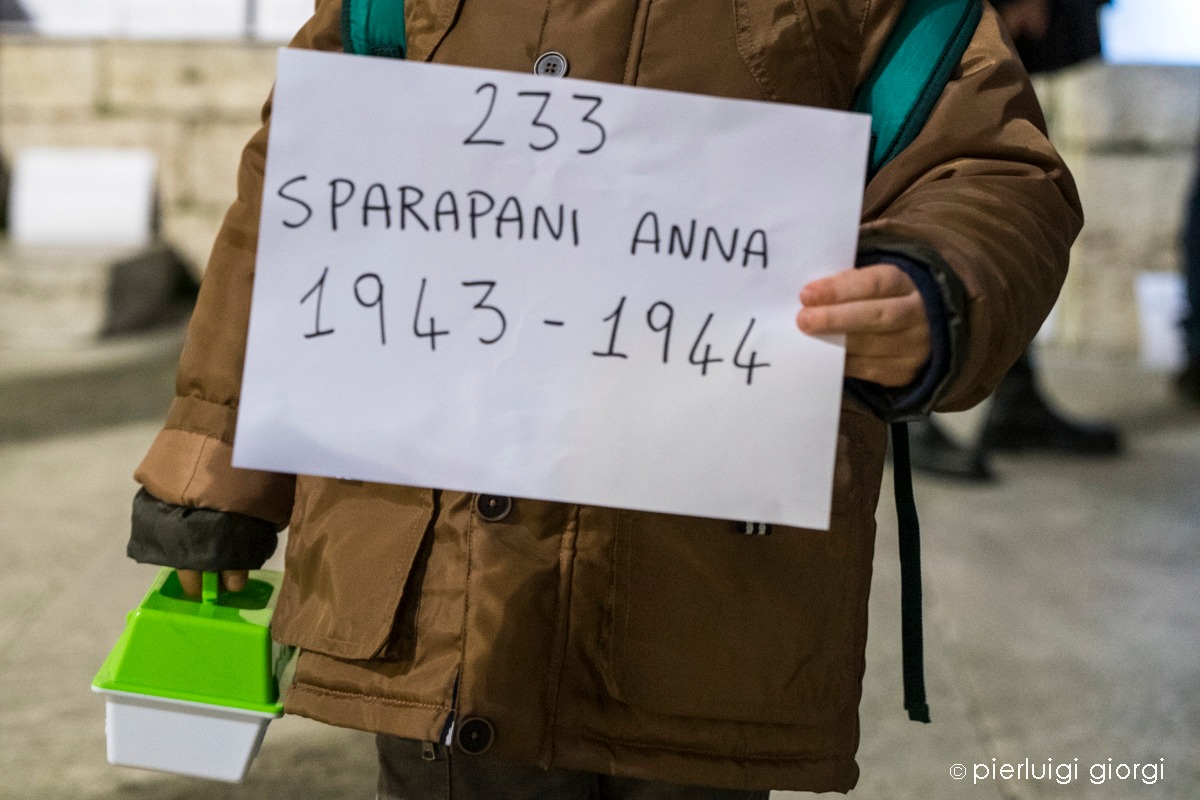 233
SPARAPANI ANNA
1943-1944
© pierluigi giorgi